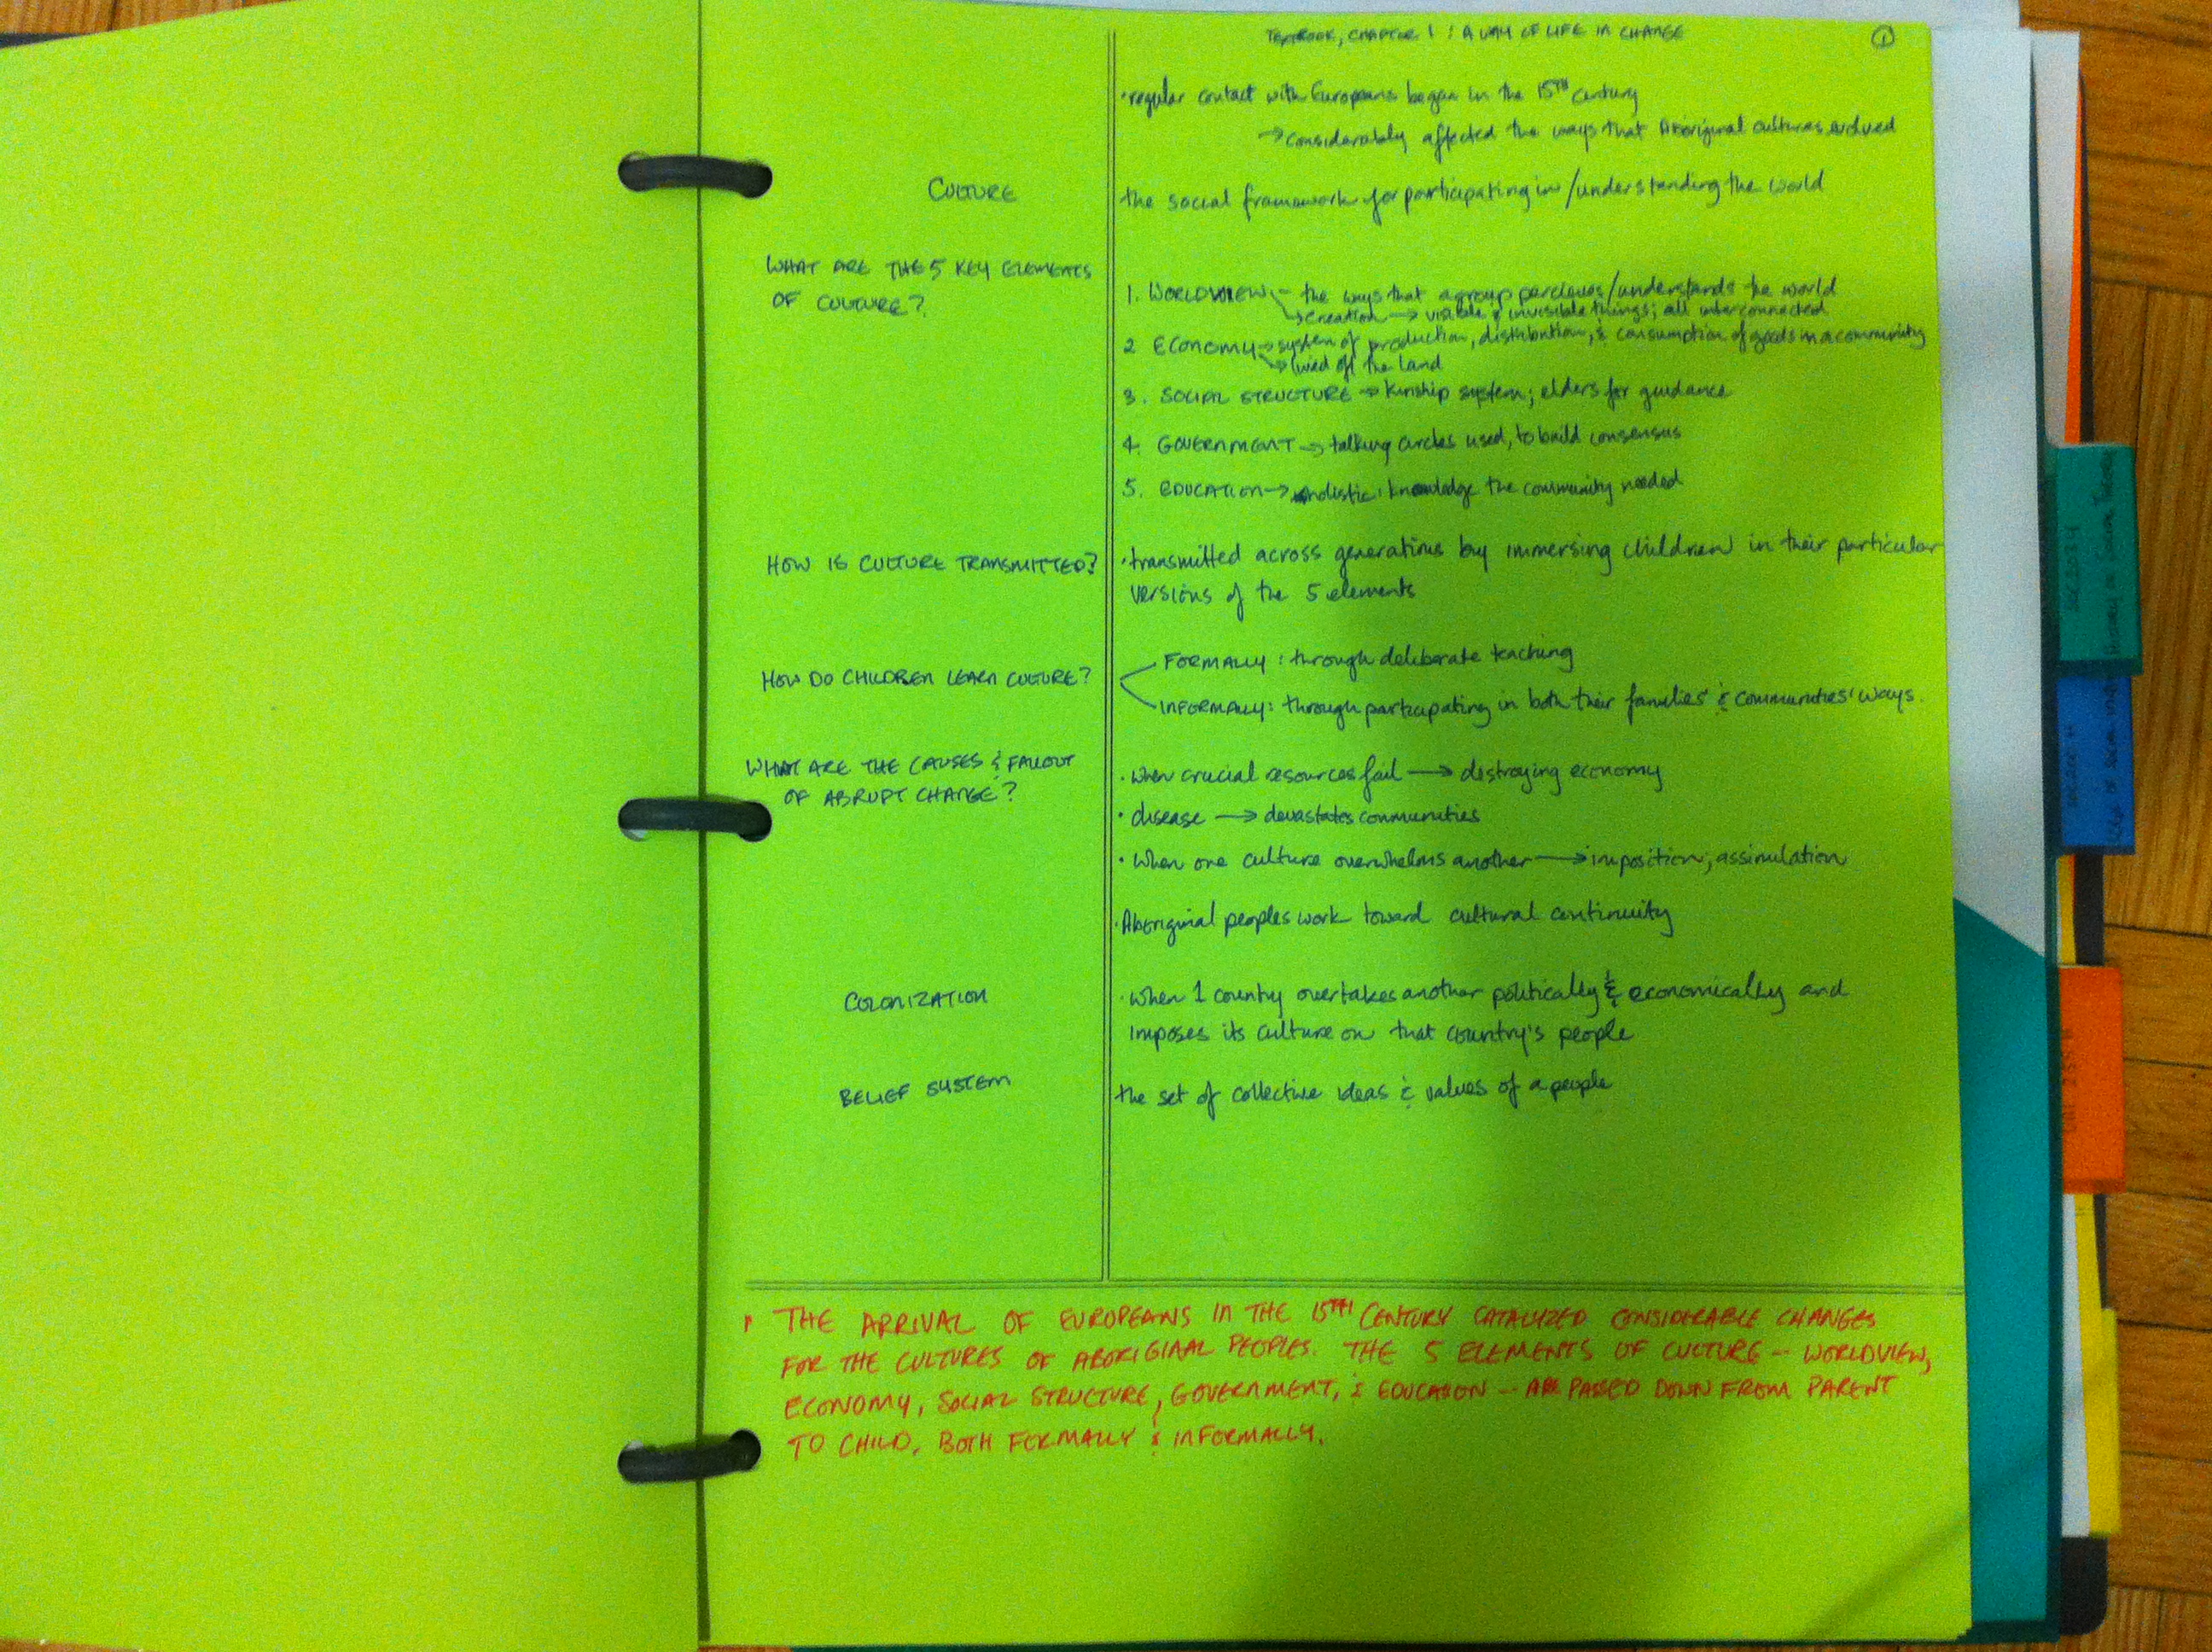 TEXTBOOK, CHAPTER 1 : A WAY OF LIFE IN CHANGE
1
· regular contact with Europeans began in the 15TH century
→ considerably affected the ways that Aboriginal cultures evolved
CULTURE
the social framework for participating in/understanding the world
WHAT ARE THE 5 KEY ELEMENTS
OF CULTURE?
1. WORLDVIEW - the ways that a group percieves/understands the world
→ creation → visible & invisible things; all interconnected
2 ECONOMY → system of production, distribution, & consumption of goods in a community
→ lived off the land
3. SOCIAL STRUCTURE → kinship system; elders for guidance
4. GOVERNMENT → talking circles used, to build consensus
5. EDUCATION → holistic: knowledge the community needed
HOW IS CULTURE TRANSMITTED?
· transmitted across generations by immersing children in their particular
versions of the 5 elements
HOW DO CHILDREN LEARN CULTURE?
FORMALLY : through deliberate teaching
INFORMALLY: through participating in both their families' & communities' ways.
WHAT ARE THE CAUSES & FALLOUT
OF ABRUPT CHANGE?
· when crucial resources fail → distroying economy
· disease → devastates communities
· when one culture overwhelms another → imposition; assimilation
· Aboriginal peoples work toward cultural continuity
COLONIZATION
· when 1 country overtakes another politically & economically and
imposes its culture on that country's people
BELIEF SYSTEM
the set of collective ideas & values of a people
THE ARRIVAL OF EUROPEANS IN THE 15TH CENTURY CATALYZED CONSIDERABLE CHANGES
FOR THE CULTURES OF ABORIGINAL PEOPLES. THE 5 ELEMENTS OF CULTURE -- WORLDVIEW,
ECONOMY, SOCIAL STRUCTURE, GOVERNMENT, & EDUCATION -- ARE PASSED DOWN FROM PARENT
TO CHILD, BOTH FORMALLY & INFORMALLY.